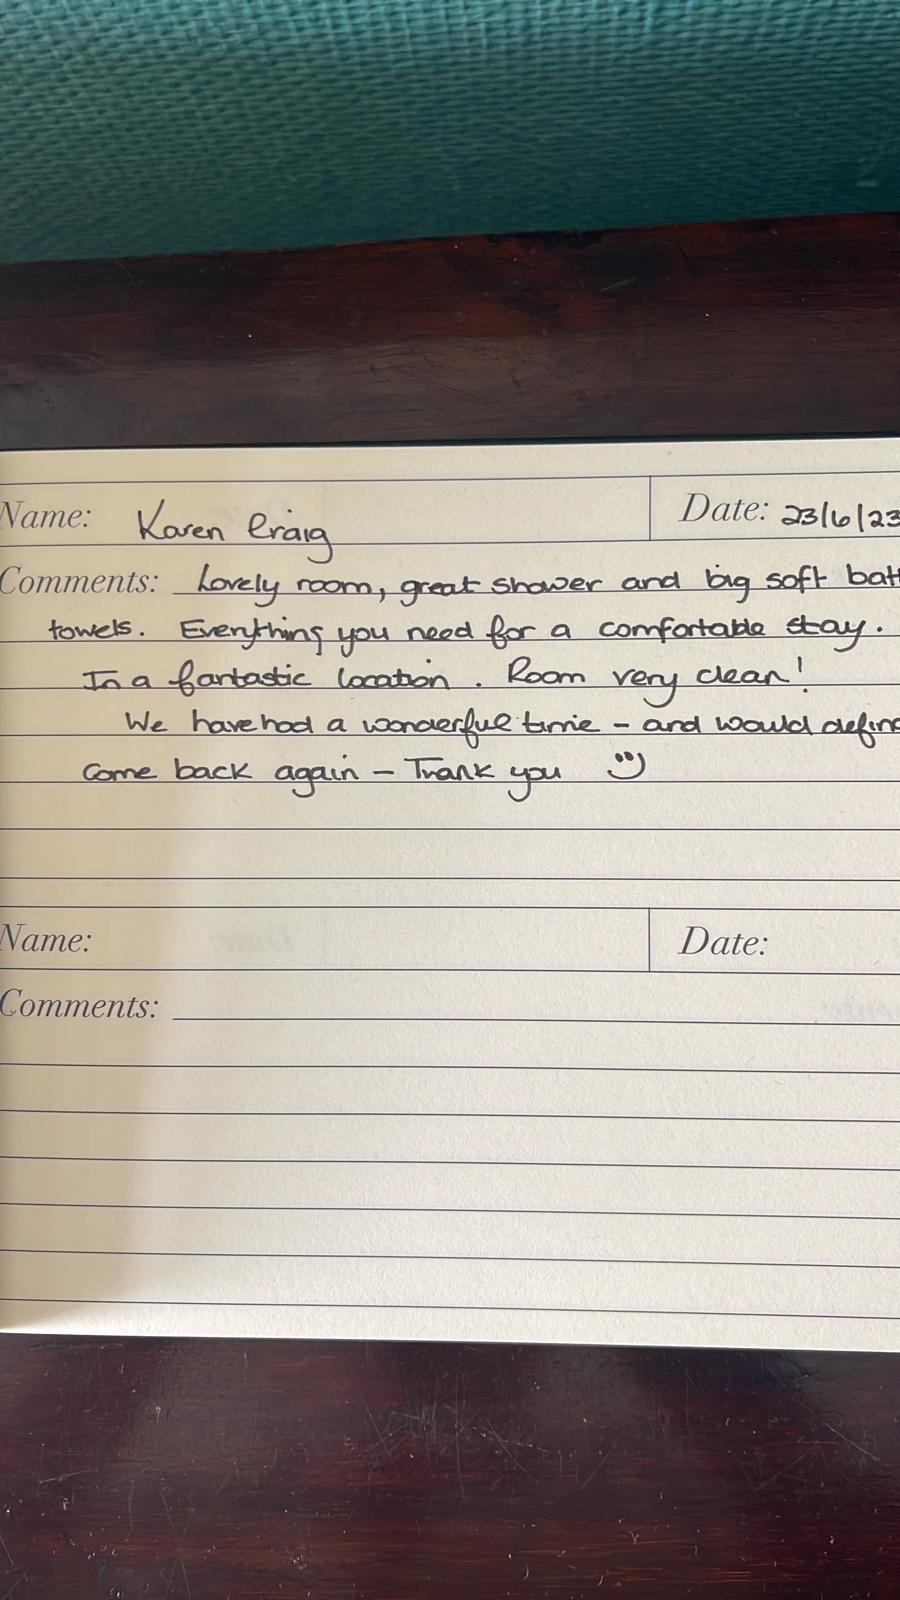 Name: Karen Craig Date: 23/6/23
Comments: Lovely room, great shower and big soft bat
towels. Everything you need for a comfortable stay.
In a fantastic location. Room very clean!
We have had a wonderful time - and would defin
come back again - Thank you
Name: Date:
Comments: